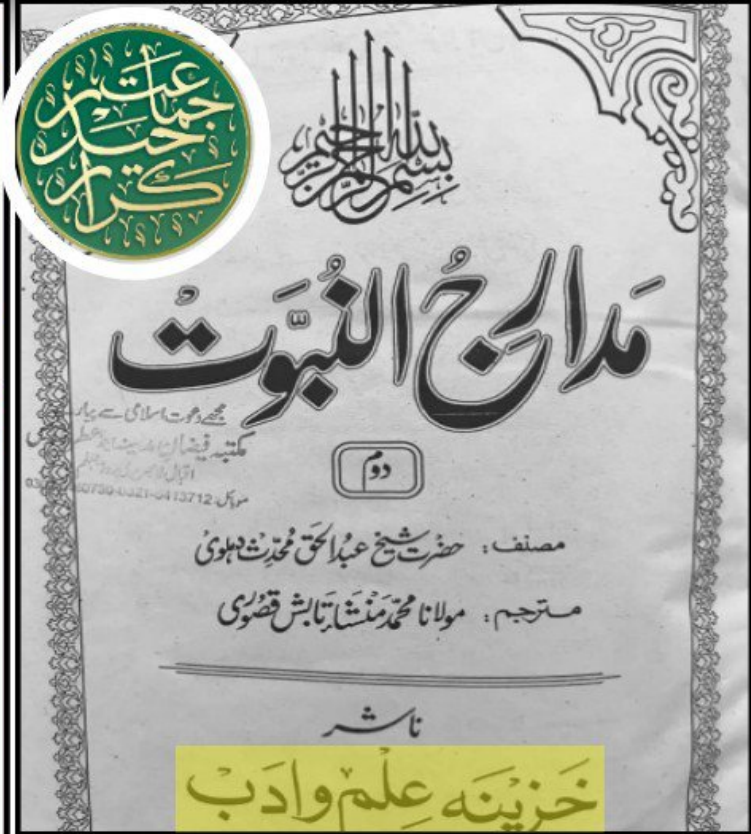 جماعت
حیدر
کرار
بسم اللہ الرحمن الرحیم
مَدارِجُ النُّبوَّت
مجھے دعوت اسلامی سے پیار
مکتبہ فیضان مدینہ
موبائل: 0321-5413712
دوم
مصنف: حضرت شیخ عبدالحق محدّث دہلوی
مترجم: مولانا محمّد مَنشَا تابش قصوری
ناشر
خَزِیْنَہ عِلْم وادَبْ